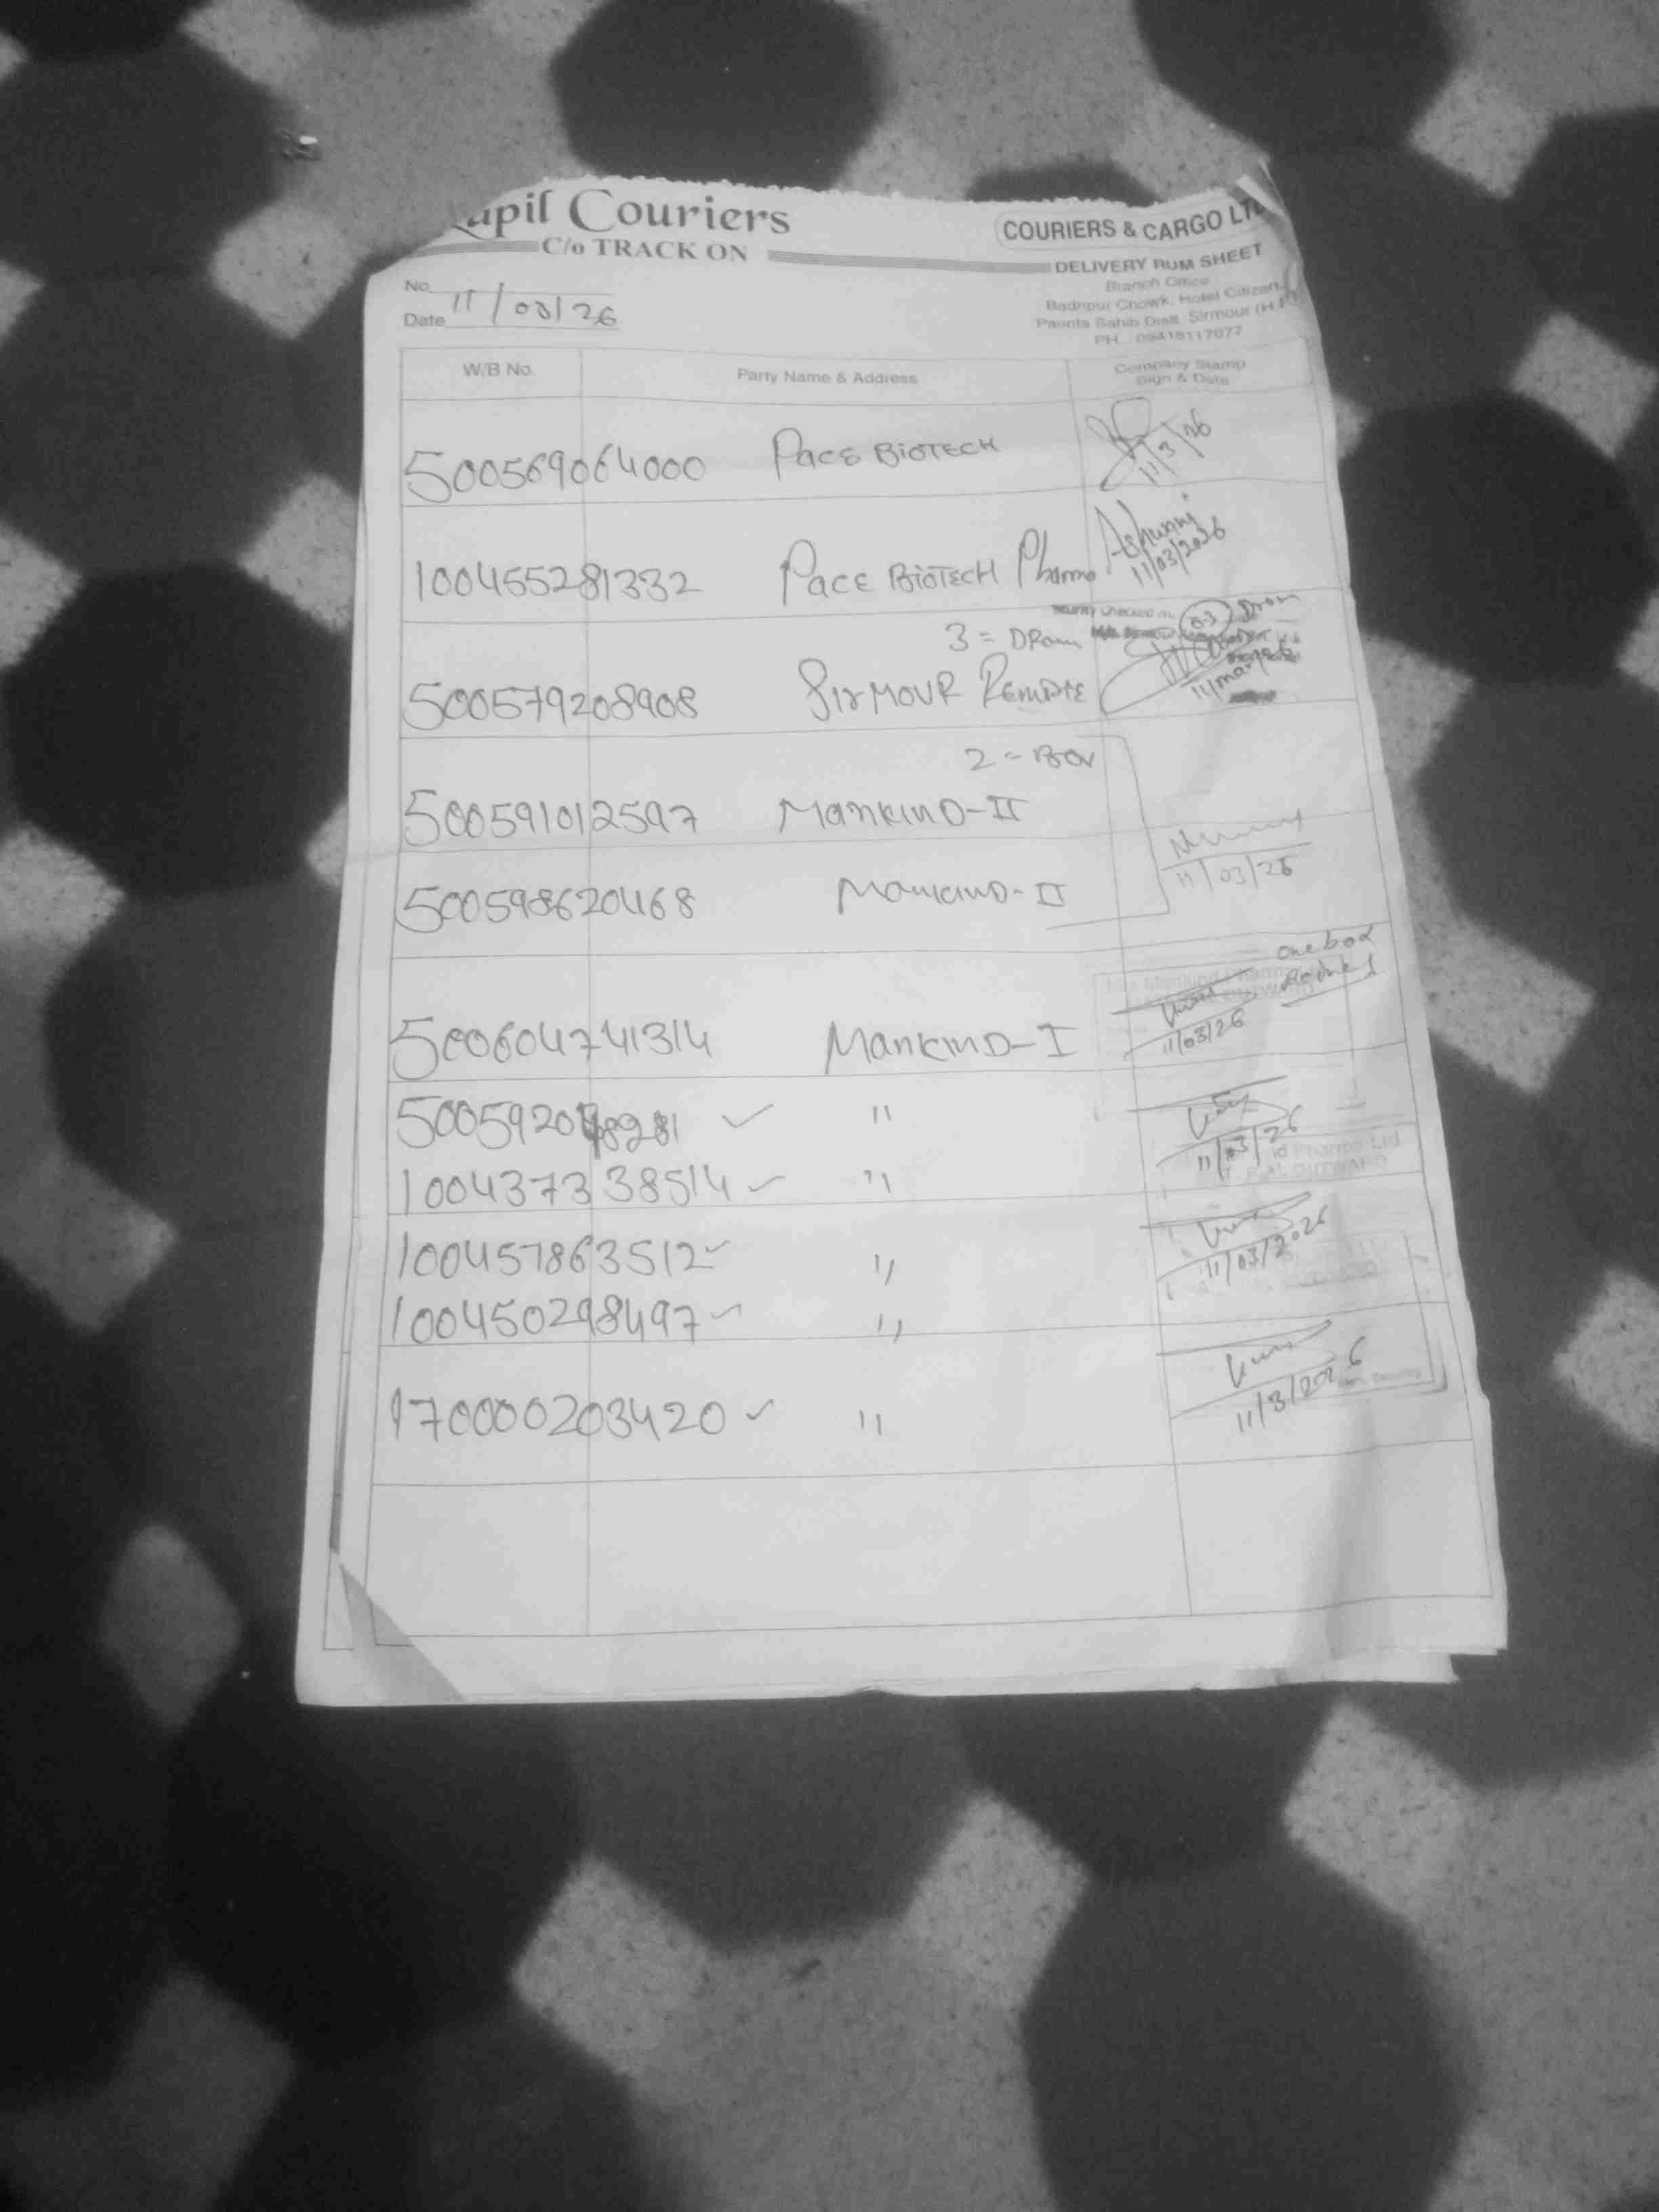 apil Couriers
C/o TRACK ON
COURIERS & CARGO LT
DELIVERY RUM SHEET
Branch Office
Badripur Chowk, Hotel Citizan,
Paonta Sahib Distt. Sirmour (H.P)
PH. 09418117077
No.
Date 11/03/26
W/B No. Party Name & Address Company Stamp
Sign & Date
500569064000 PacE BiOTECH 11/3/26
100455281332 PacE BiOTECH Pharma Ashwani
11/03/2026
3 = DRam
500579208908 SirMOUR
11/mar
2 = Box
500591012597 MankinD-II
11/03/26
500598620468 MankinD-II
one box
500604741314 MankinD-I
11/03/26
50059208281 "
11/03/26
100437338514 "
100457863512 "
11/03/2026
100450298497 "
170000203420 "
11/3/2026